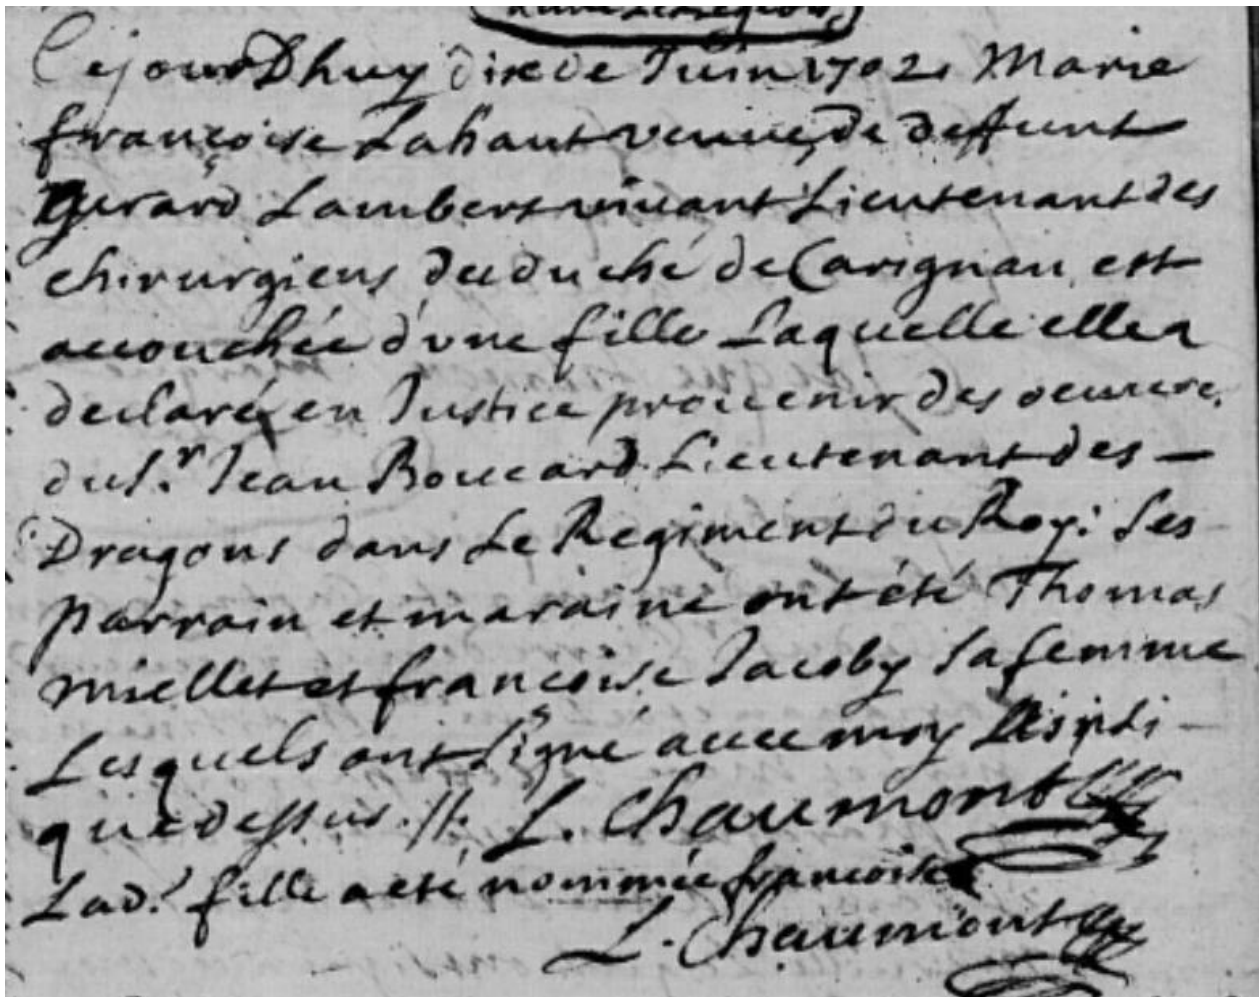 Cejourdhuy dixe de Juin 1702. Marie
françoise Lahaut veuve de deffunt
Gerard Lambert vivant Lieutenant des
chirurgiens du duché de Carignan, est
accouchée d'une fille Laquelle elle a
declaré en Justice provenir des oeuvre,
du Sr. Jean Boucard Lieutenant des —
Dragons dans Le Regiment du Roy: Ses
parrain et maraine ont été Thomas
Miellet et françoise Jacoby sa femme
Lesquels ont signé avec moy
que dessus. //. L. Chaumont
Lad.e fille a eté nommée françoise
L. Chaumont